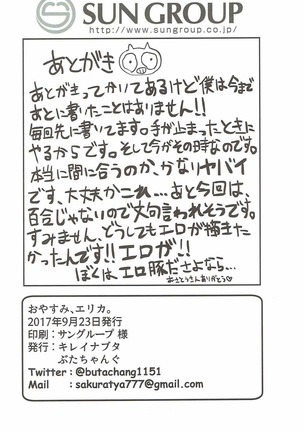 SUN GROUP
http://www.sungroup.co.jp/
あとがき
あとがきってかいてあるけど僕は今まで
あとに書いたことはありません!!
毎回先に書いてます。手が止まったときに
やるからです。そして今がその時なのです。
本当に間に合うのか、かなりヤバイ
です、大丈夫かこれ…あと今回は、
百合じゃないので文句言われそうです。
すみません、どうしてもエロが描きた
かったんです!!エロが!!
ぼくは、エロ豚ださよなら…
あさとうさんありがとう♡
おやすみ、エリカ。
2017年9月23日発行
印刷:サングループ 様
発行:キレイナブタ
ぶたちゃんぐ
Twitter : @butachang1151
Mail : sakuratya777@gmail.com